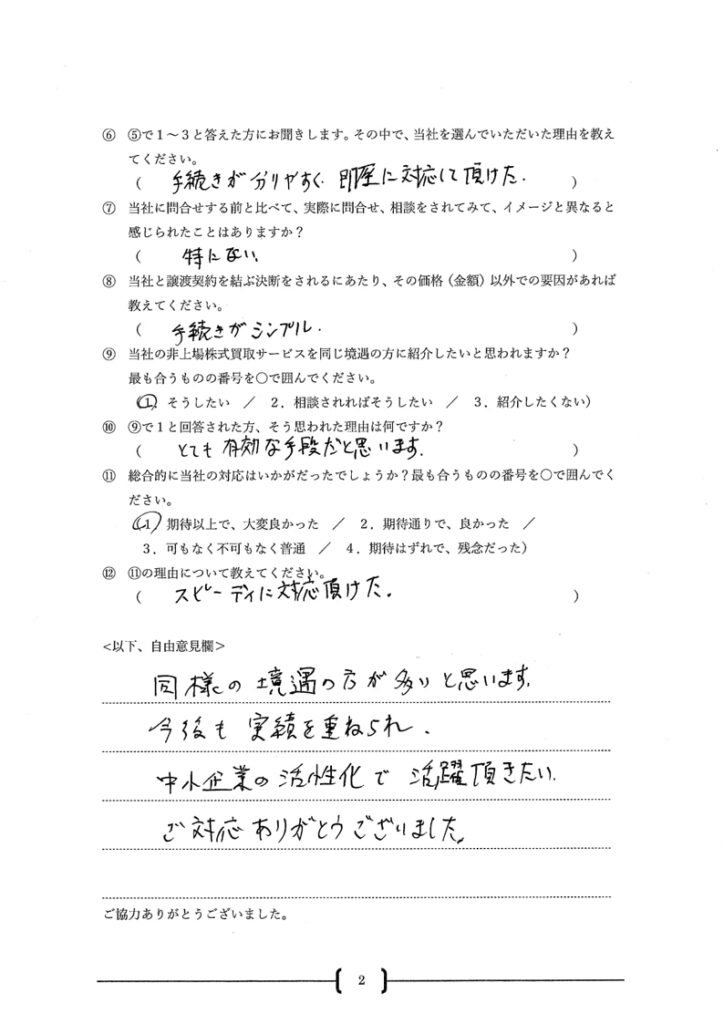 ⑥ ⑤で１～３と答えた方にお聞きします。その中で、当社を選んでいただいた理由を教え
てください。
（ 手続きが分りやすく、即座に対応して頂けた. ）
⑦ 当社に問合せする前と比べて、実際に問合せ、相談をされてみて、イメージと異なると
感じられたことはありますか？
（ 特にない. ）
⑧ 当社と譲渡契約を結ぶ決断をされるにあたり、その価格（金額）以外での要因があれば
教えてください。
（ 手続きがシンプル. ）
⑨ 当社の非上場株式買取サービスを同じ境遇の方に紹介したいと思われますか？
最も合うものの番号を○で囲んでください。
（１．そうしたい ／ ２．相談されればそうしたい ／ ３．紹介したくない）
⑩ ⑨で１と回答された方、そう思われた理由は何ですか？
（ とても有効な手段だと思います. ）
⑪ 総合的に当社の対応はいかがだったでしょうか？最も合うものの番号を○で囲んでく
ださい。
（１．期待以上で、大変良かった ／ ２．期待通りで、良かった ／
３．可もなく不可もなく普通 ／ ４．期待はずれで、残念だった）
⑫ ⑪の理由について教えてください。
（ スピーディに対応頂けた. ）
＜以下、自由意見欄＞
同様の境遇の方が多いと思います.
今後も実績を重ねられ、
中小企業の活性化で活躍頂きたい.
ご対応ありがとうございました.
ご協力ありがとうございました。
2